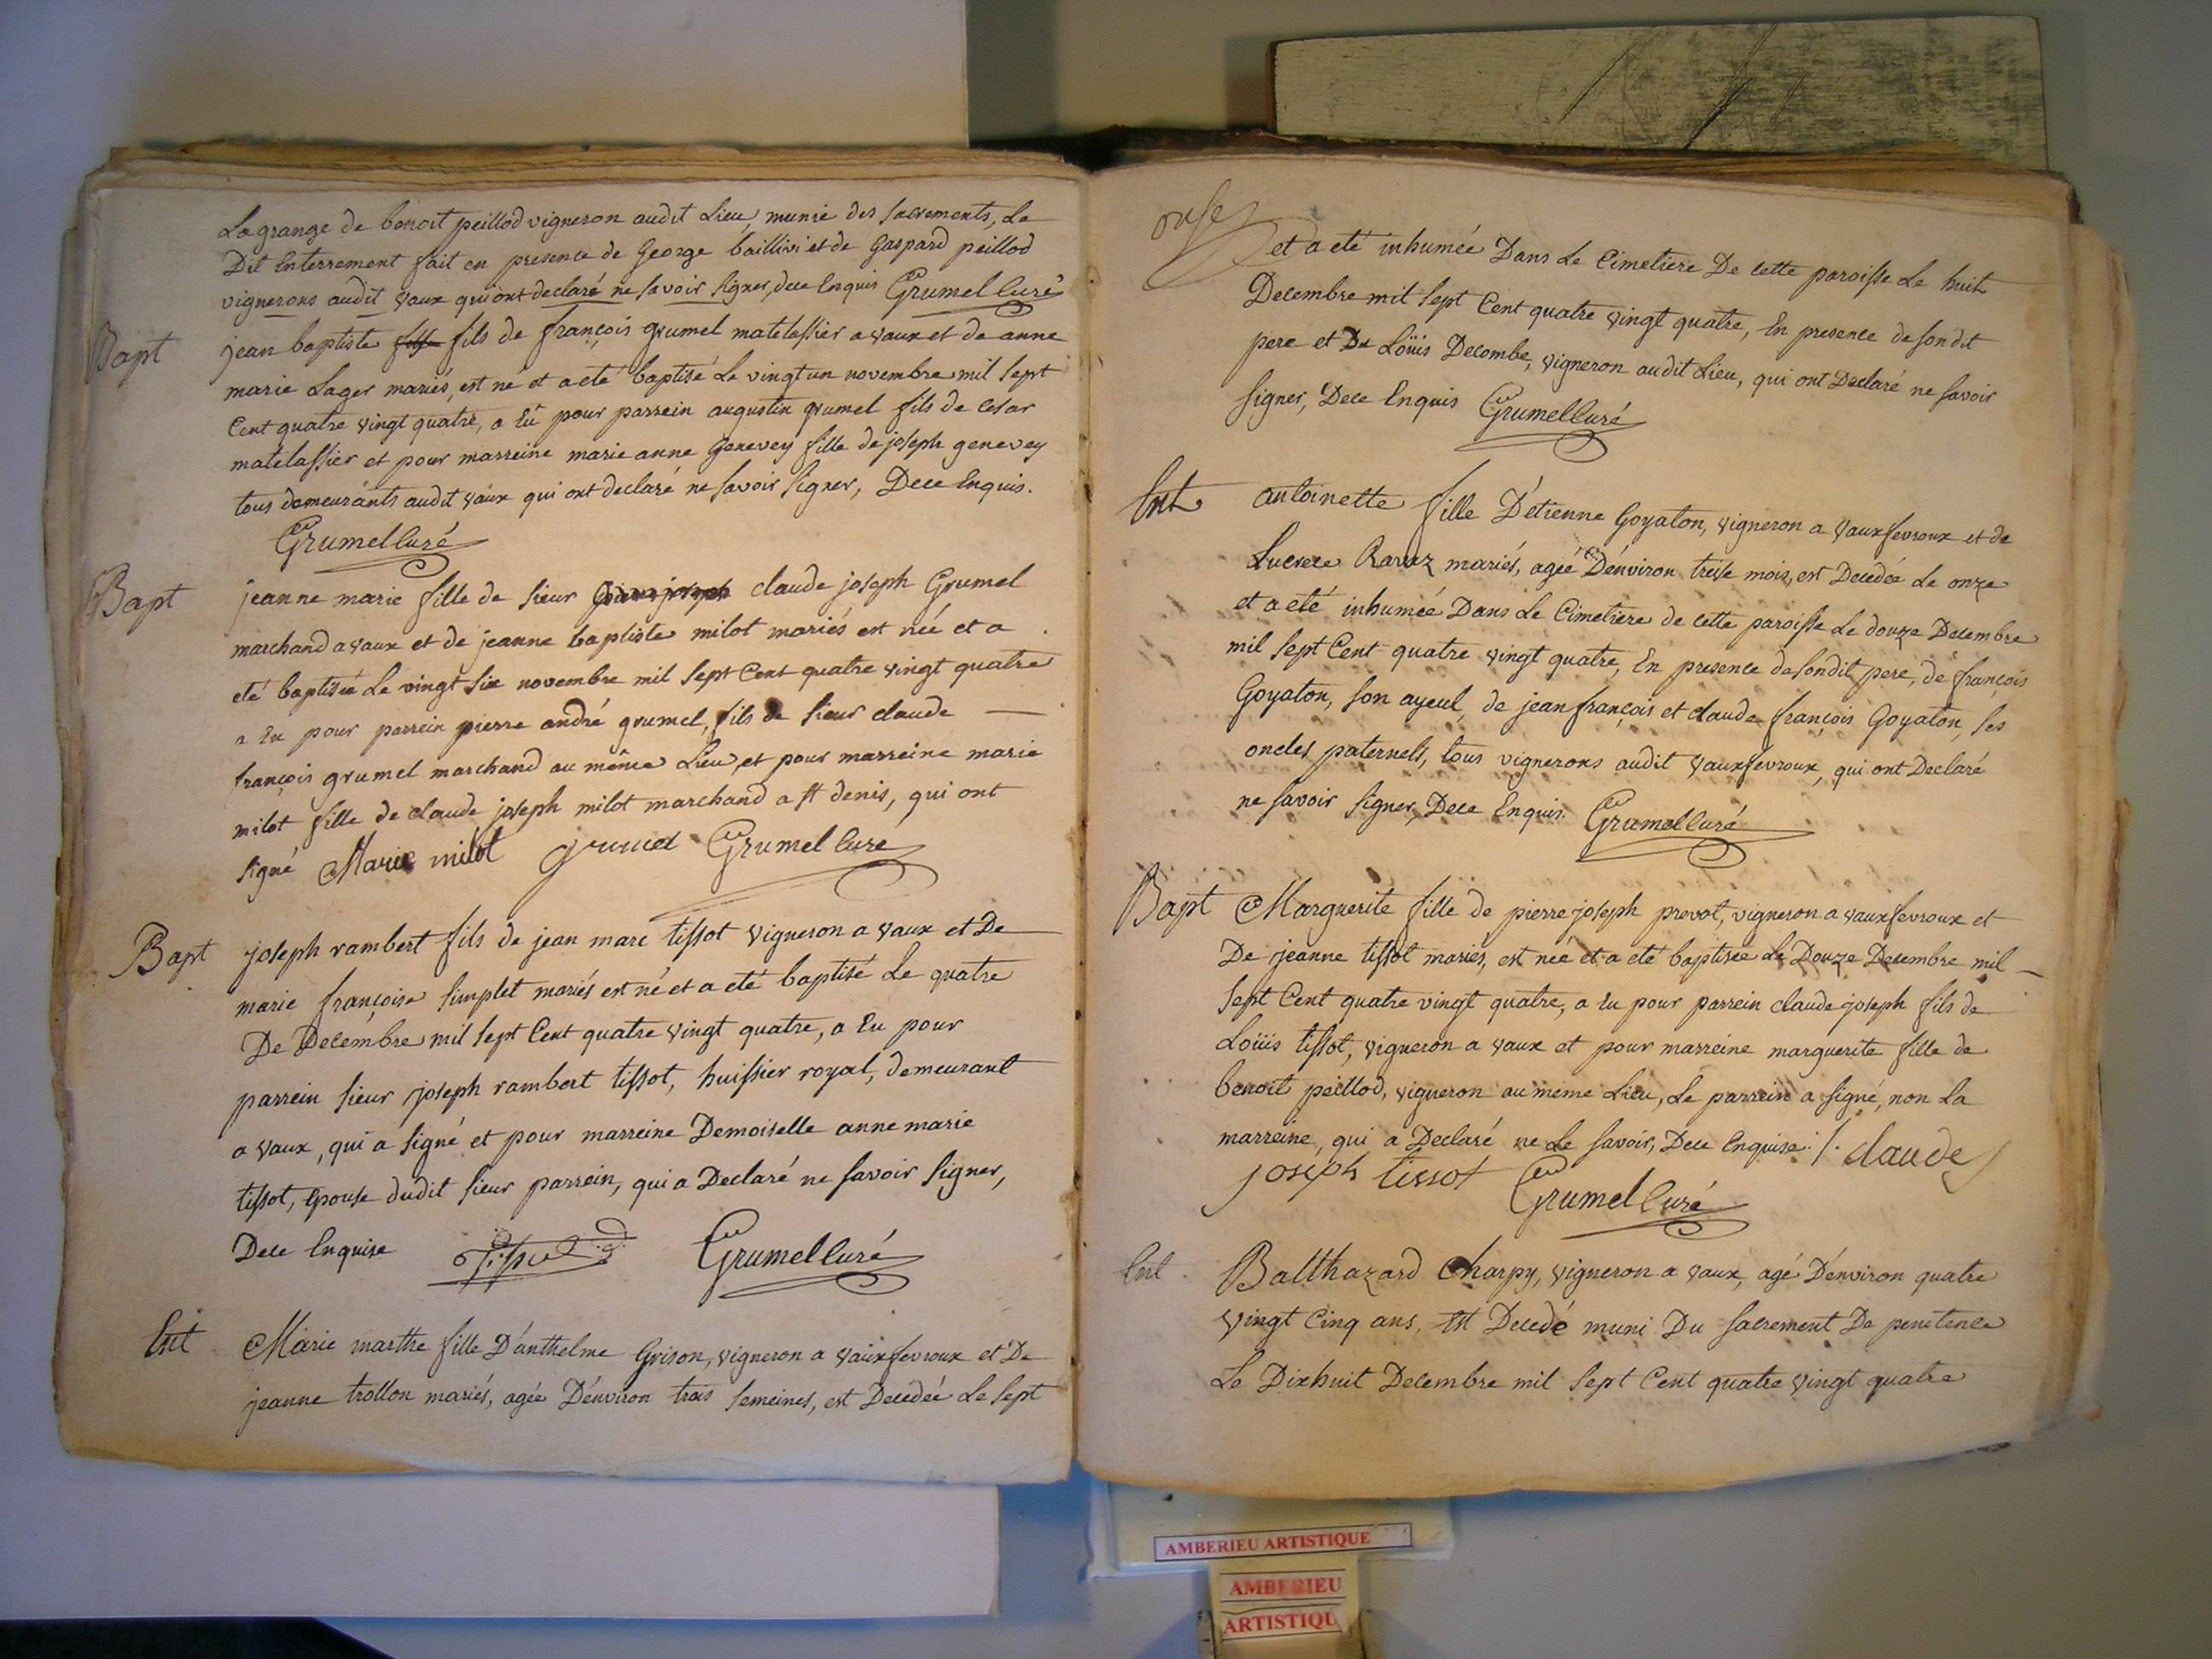 La grange de benoit peillod vigneron audit Lieu, munie des sacrements, Le
Dit Enterrement fait en presence de George baillivi et de Gaspard peillod
vignerons audit vaux qui ont declaré ne savoir signer, de ce Enquis Grumel Curé
Bapt jean baptiste fils de françois grumel matelassier a vaux et de anne
marie Lager mariés, est né et a eté baptisé Le vingt un novembre mil sept
Cent quatre vingt quatre, a Eü pour parrein augustin grumel fils de Cesar
matelassier et pour marreine marie anne Genevey fille de joseph genevey
tous demeurants audit vaux qui ont declaré ne savoir signer, De ce Enquis.
Grumel Curé
Bapt jeanne marie fille de sieur claude joseph Grumel
marchand a vaux et de jeanne baptiste milot mariés est née et a
eté baptisée Le vingt six novembre mil sept Cent quatre vingt quatre
a Eu pour parrein pierre andré grumel, fils de sieur claude
françois grumel marchand au même Lieu, et pour marreine marie
milot fille de claude joseph milot marchand a st denis, qui ont
signé Marie milot grumel Grumel Curé
Bapt joseph rambert fils de jean marc tissot vigneron a vaux et De
marie françoise simplet mariés est né et a eté baptisé Le quatre
De Decembre mil sept Cent quatre vingt quatre, a Eu pour
parrein sieur joseph rambert tissot, huissier royal, demeurant
a vaux, qui a signé et pour marreine Demoiselle anne marie
tissot, Epouse dudit sieur parrein, qui a Declaré ne savoir signer,
De ce Enquise Tissot Grumel Curé
Ent Marie marthe fille D'anthelme Grison, vigneron a vaux fevroux et De
jeanne trollon mariés, agée D'environ trois semeines, est Decedée Le sept
onse
et a eté inhumée Dans Le Cimetiere De cette paroisse Le huit
Decembre mil sept Cent quatre vingt quatre, En presence de sondit
pere et De Loüis Decombe, vigneron audit Lieu, qui ont Declaré ne savoir
signer, De ce Enquis Grumel Curé
Ent antoinette fille D'etienne Goyaton, vigneron a vaux fevroux et de
Lucrece Ravaz mariés, agée D'environ treise mois, est Decedée Le onze
et a eté inhumée Dans Le Cimetiere de cette paroisse Le douze Decembre
mil sept Cent quatre vingt quatre, En presence de sondit pere, de françois
Goyaton, son ayeul, de jean françois et claude françois Goyaton, ses
oncles paternels, tous vignerons audit vaux fevroux, qui ont Declaré
ne savoir signer, De ce Enquis. Grumel Curé
Bapt Marguerite fille de pierre joseph prevot, vigneron a vaux fevroux et
De jeanne tissot mariés, est née et a eté baptisée Le Douze Decembre mil
sept Cent quatre vingt quatre, a Eu pour parrein claude joseph fils de
Loüis tissot, vigneron a vaux et pour marreine marguerite fille de
benoit peillod, vigneron au meme Lieu, Le parrein a signé, non La
marreine, qui a Declaré ne Le savoir, De ce Enquise ./. claude
joseph tissot Grumel Curé
Ent Balthazard Charpy, vigneron a vaux, agé D'environ quatre
vingt Cinq ans, Est Decedé muni Du sacrement De penitence
Le Dixhuit Decembre mil sept Cent quatre vingt quatre
AMBERIEU ARTISTIQUE
AMBERIEU
ARTISTIQU